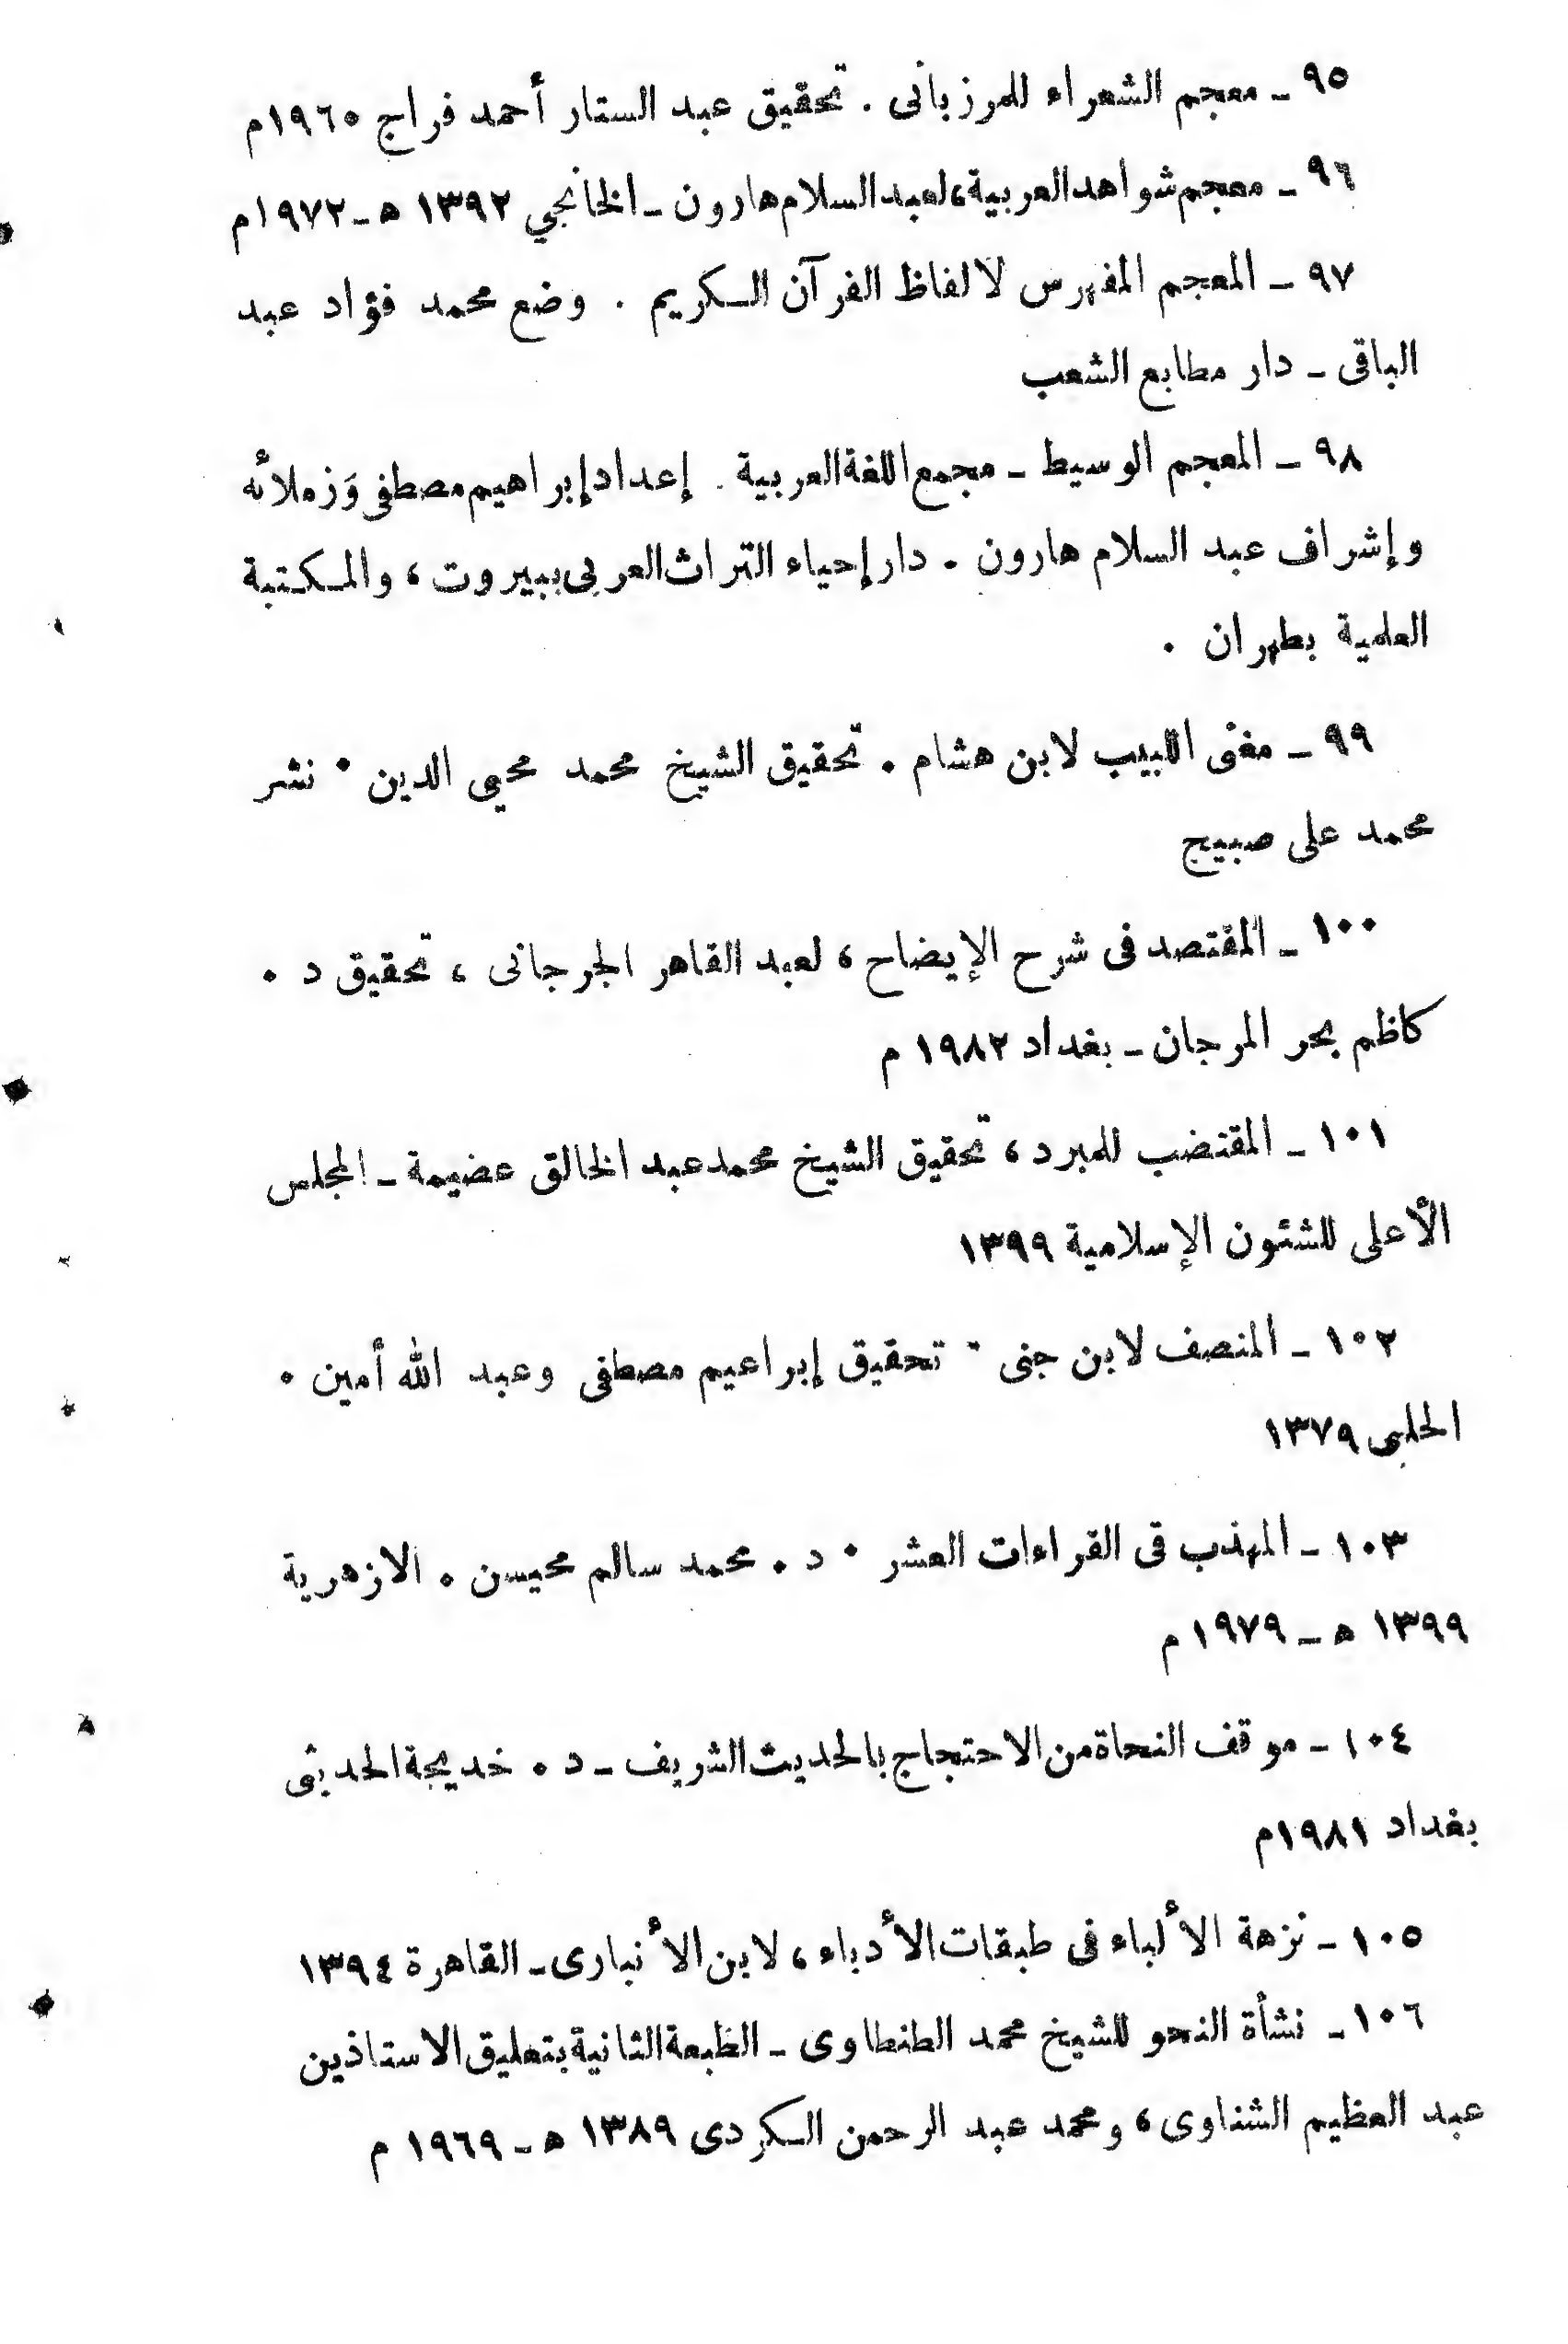 ٩٥ ـ معجم الشعراء للمرزبانى . تحقيق عبد الستار أحمد فراج ١٩٦٥م
٩٦ ـ معجم شواهد العربية ، لعبد السلام هارون ـ الخانجي ١٣٩٢ هـ ـ ١٩٧٢م
٩٧ ـ المعجم المفهرس لالفاظ القرآن الكريم . وضع محمد فؤاد عبد
الباقى ـ دار مطابع الشعب
٩٨ ـ المعجم الوسيط ـ مجمع اللغة العربية . إعداد إبراهيم مصطفى وَزملائه
وإشراف عبد السلام هارون . دار إحياء التراث العربى ببيروت ، والمكتبة
العلمية بطهران .
٩٩ ـ مغنى اللبيب لابن هشام . تحقيق الشيخ محمد محيى الدين . نشر
محمد على صبيح
١٠٠ ـ المقتصد فى شرح الإيضاح ، لعبد القاهر الجرجانى ، تحقيق د .
كاظم بحر المرجان ـ بغداد ١٩٨٢ م
١٠١ ـ المقتضب للمبرد ، تحقيق الشيخ محمد عبد الخالق عضيمة ـ المجلس
الأعلى للشئون الإسلامية ١٣٩٩
١٠٢ ـ المنصف لابن جنى - تحقيق إبراعيم مصطفى وعبد الله أمين .
الحلبى ١٣٧٩
١٠٣ ـ المهذب فى القراءات العشر . د . محمد سالم محيسن . الازهرية
١٣٩٩ هـ ـ ١٩٧٩ م
١٠٤ ـ موقف النحاة من الاحتجاج بالحديث الشريف ـ د . خديجة الحديثى
بغداد ١٩٨١م
١٠٥ ـ نزهة الألباء فى طبقات الأدباء ، لابن الأنبارى ـ القاهرة ١٣٩٤
١٠٦ ـ نشأة النحو للشيخ محمد الطنطاوى ـ الطبعة الثانية بتعليق الاستاذين
عبد العظيم الشناوى ، ومحمد عبد الرحمن الكردى ١٣٨٩ هـ ـ ١٩٦٩ م